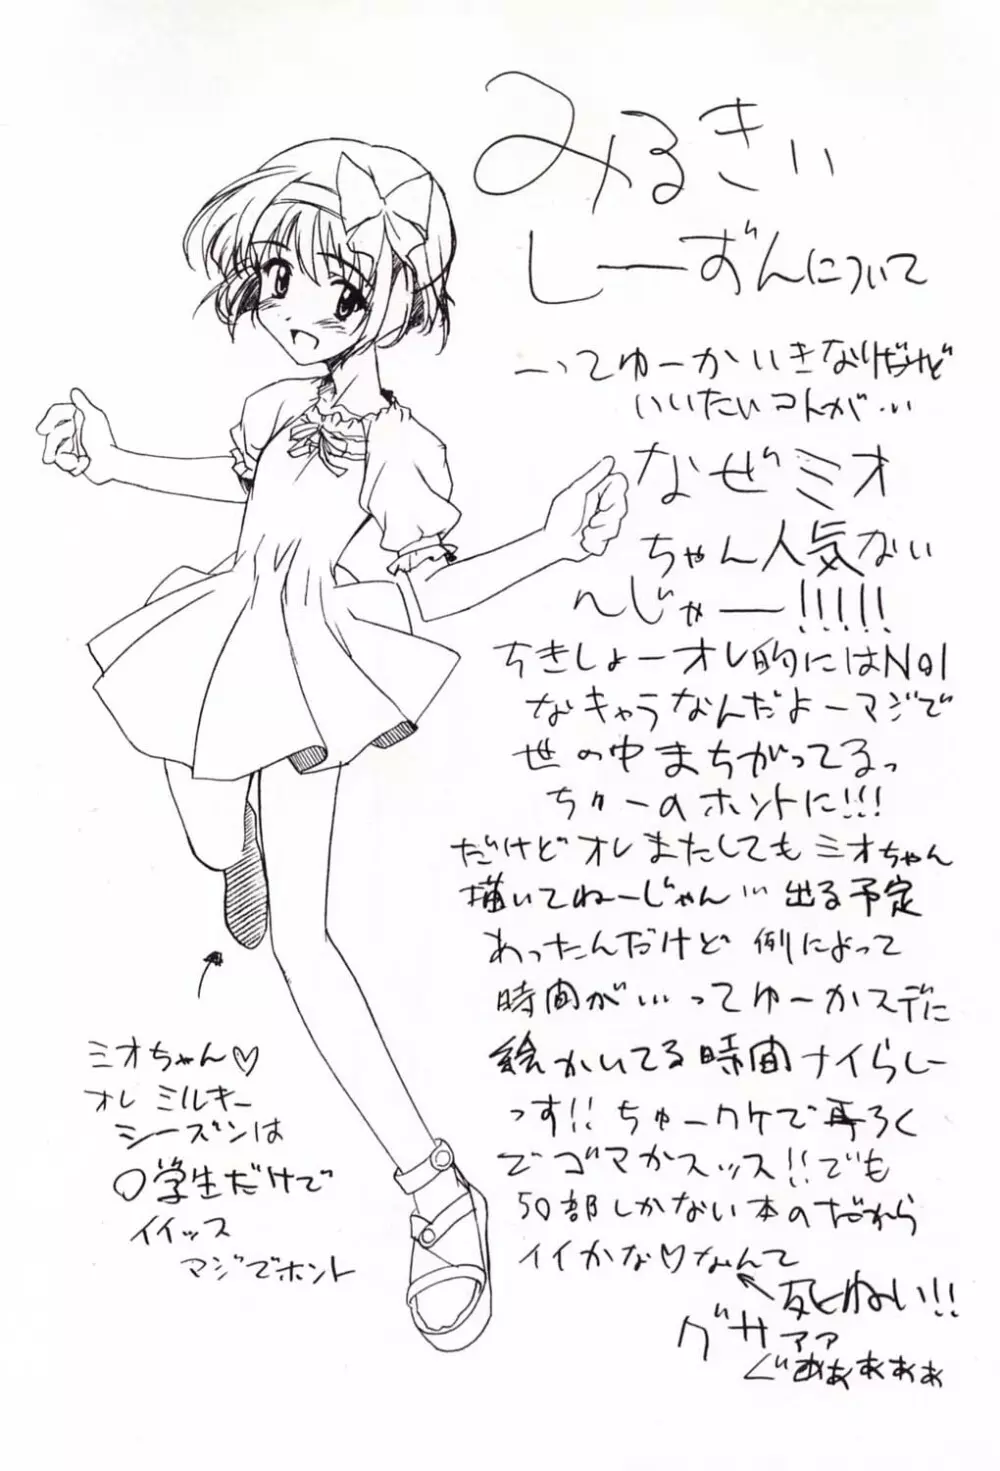 みるきい
しーずんについて
ーってゆーかいきなりだけど
いいたいコトが‥い
なぜミオ
ちゃん人気ない
んじゃー!!!!!
ちきしょーオレ的にはNo1
なキャラなんだよーマジで
世の中まちがってるっ
ちゅーのホントに!!!
だけどオレまたしてもミオちゃん
描いてねーじゃん… 出る予定
あったんだけど 例によって
時間が…ってゆーかスデに
絵かいてる時間ナイらしー
っす!! ちゅーワケで再ろく
でゴマかスッス!!でも
50部しかない本のだから
イイかな♡なんて
←死ねい!!
グサァァ
ぐああああぁ
ミオちゃん♡
オレ ミルキー
シーズンは
○学生だけで
イイッス
マジでホント